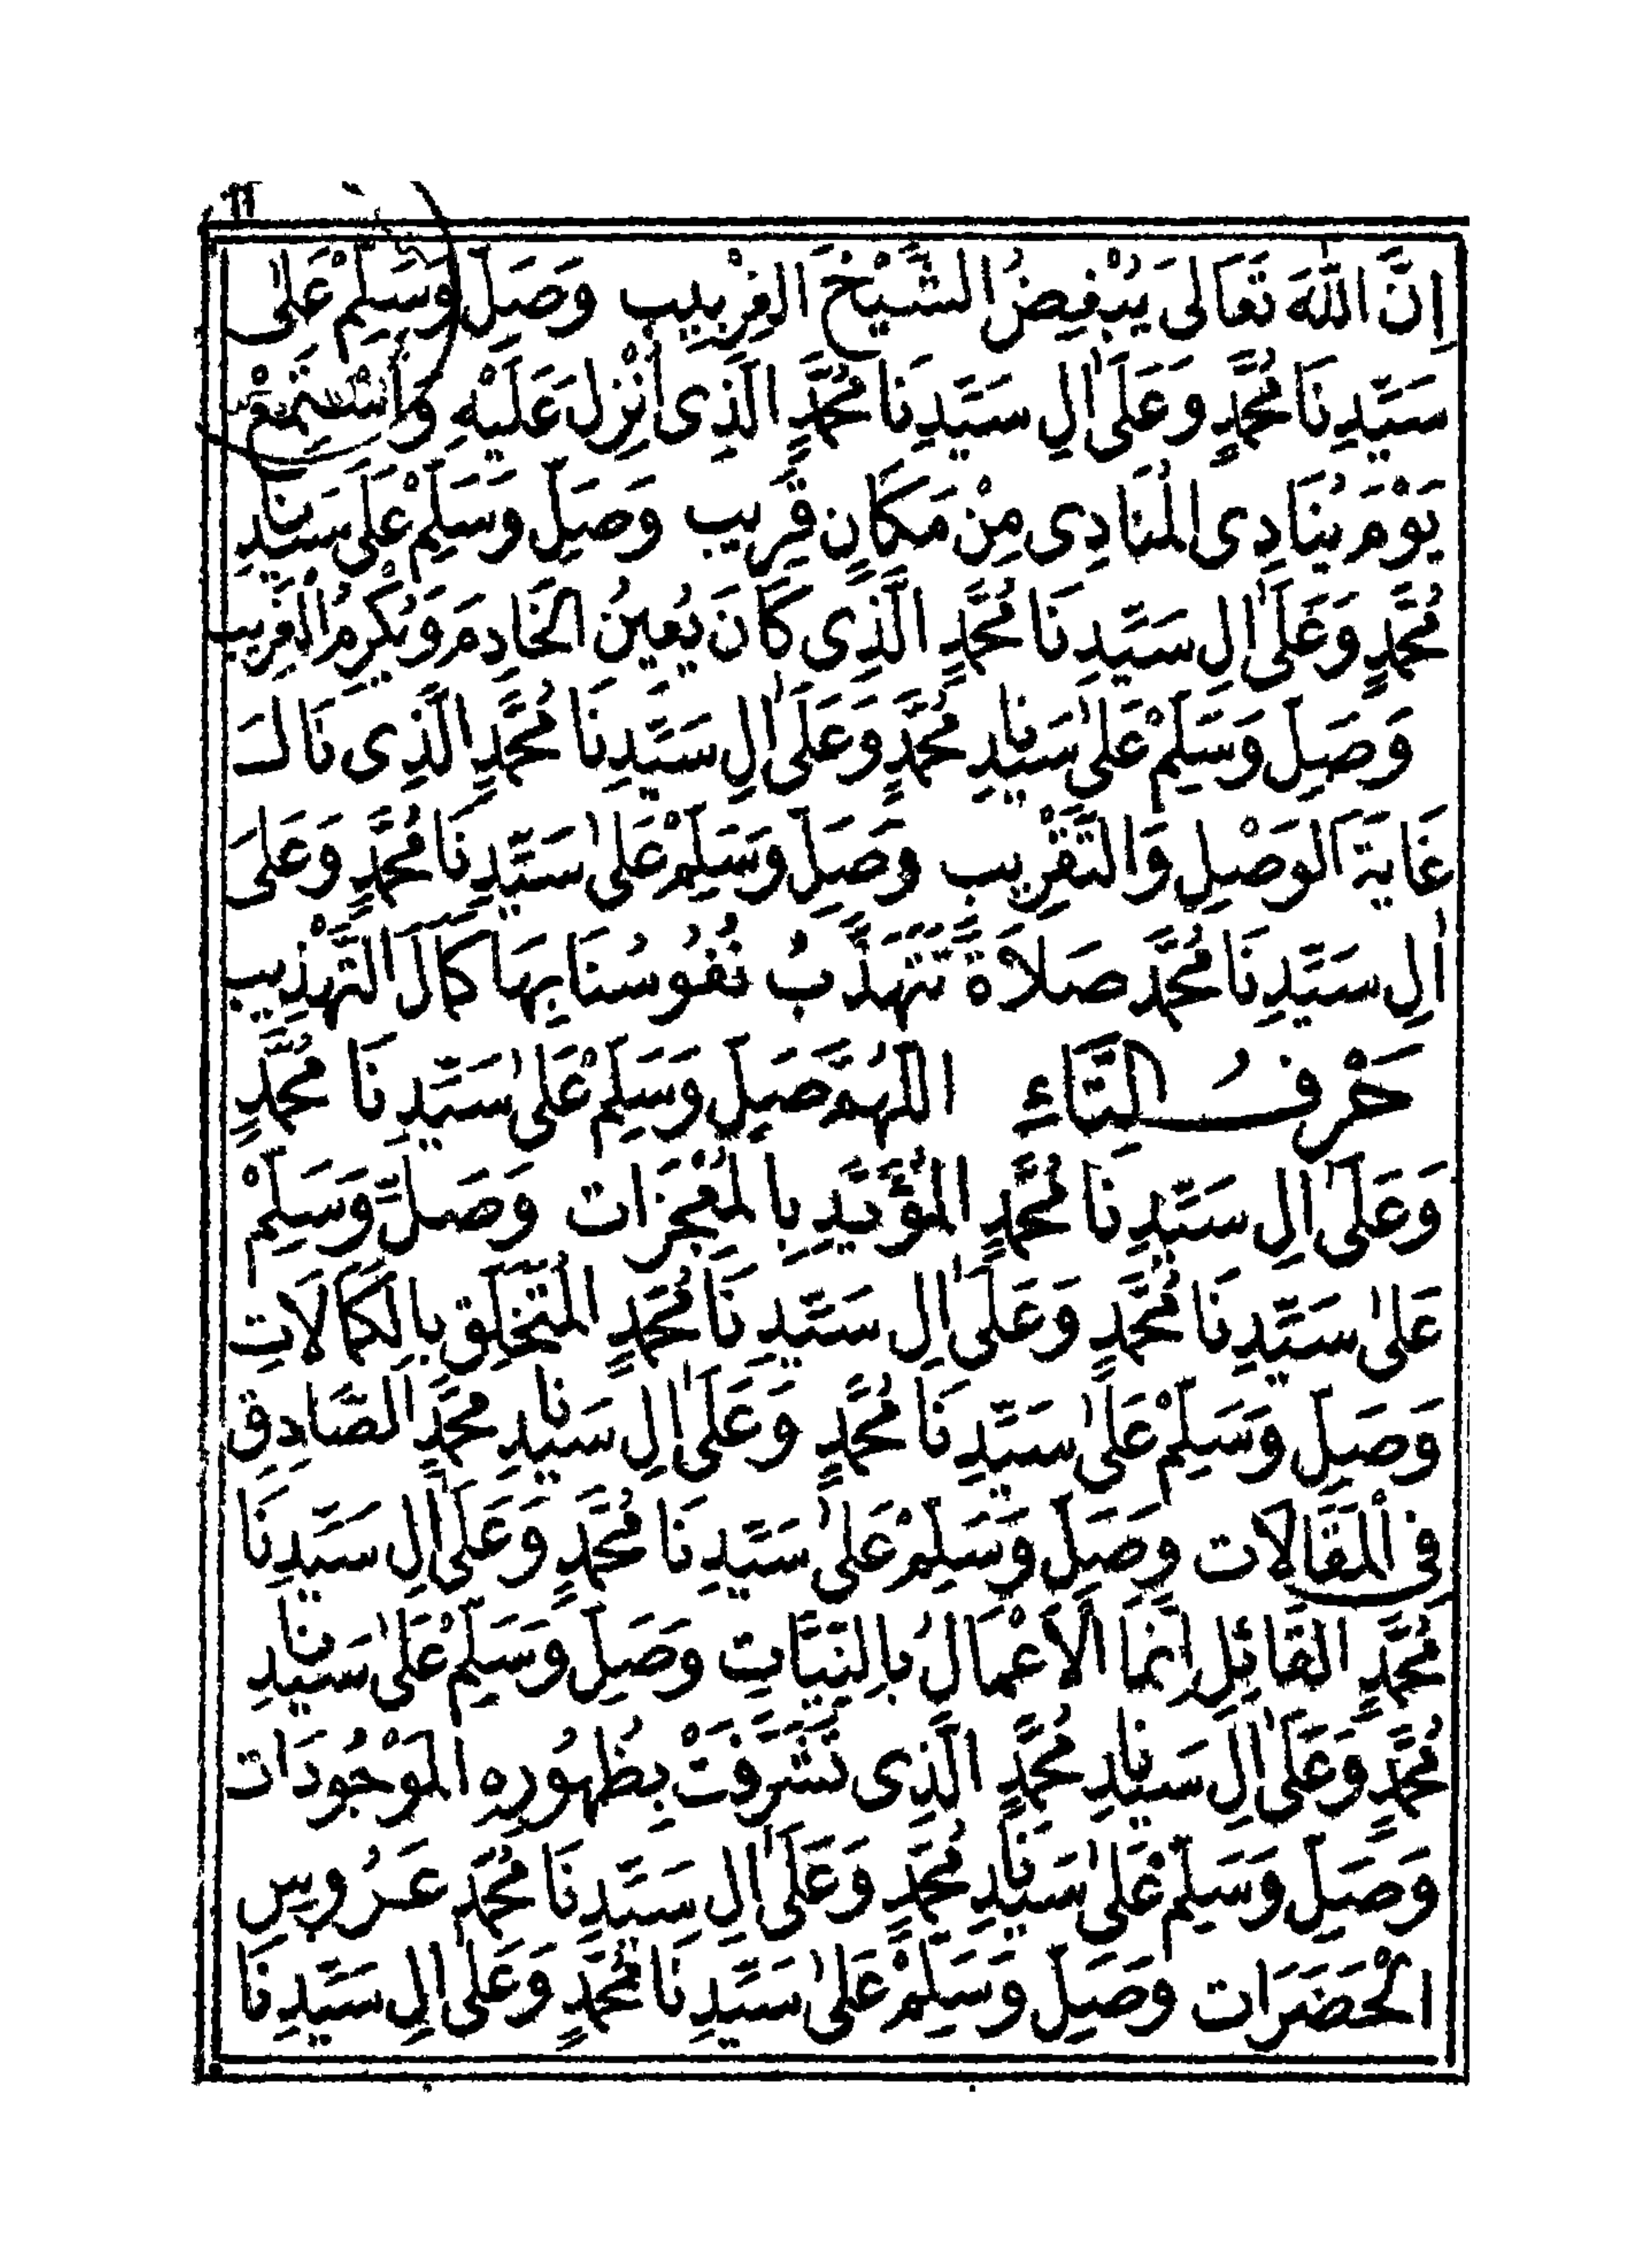 ١١
اِنَّ اللّٰهَ تَعَالَى يُبْغِضُ الشَّيْخَ الغِرْبِيبِ وَصَلِّ وَسَلِّمْ عَلٰى
سَيِّدِنَا مُحَمَّدٍ وَعَلَى اٰلِ سَيِّدِنَا مُحَمَّدٍ الَّذِى اُنْزِلَ عَلَيْهِ وَاسْتَمِعْ
يَوْمَ يُنَادِى الْمُنَادِى مِنْ مَكَانٍ قَرِيبٍ وَصَلِّ وَسَلِّمْ عَلَى سَيِّدِنَا
مُحَمَّدٍ وَعَلَى اٰلِ سَيِّدِنَا مُحَمَّدٍ الَّذِى كَانَ يُعِينُ الخَادِمَ وَيُكْرِمُ الْغَرِيب
وَصَلِّ وَسَلِّمْ عَلٰى سَيِّدِنَا مُحَمَّدٍ وَعَلَى اٰلِ سَيِّدِنَا مُحَمَّدٍ الَّذِى نَالَ
غَايَةَ الوَصْلِ وَالتَّقْرِيبِ وَصَلِّ وَسَلِّمْ عَلٰى سَيِّدِنَا مُحَمَّدٍ وَعَلَى
اٰلِ سَيِّدِنَا مُحَمَّدٍ صَلاَةً تَتَهَذَّبُ نُفُوسُنَا بِهَا كَمَالَ التَّهْذِيبِ
حَرْفُ التَّاءِ اللّٰهُمَّ صَلِّ وَسَلِّمْ عَلٰى سَيِّدِنَا مُحَمَّدٍ
وَعَلَى اٰلِ سَيِّدِنَا مُحَمَّدٍ المُؤَيَّدِ بِالمُعْجِزَات وَصَلِّ وَسَلِّمْ
عَلٰى سَيِّدِنَا مُحَمَّدٍ وَعَلَى اٰلِ سَيِّدِنَا مُحَمَّدٍ المُتَخَلِّقِ بِالكَمَالَاتِ
وَصَلِّ وَسَلِّمْ عَلٰى سَيِّدِنَا مُحَمَّدٍ وَعَلَى اٰلِ سَيِّدِنَا مُحَمَّدٍ الصَّادِقِ
فِى الْمَقَالَات وَصَلِّ وَسَلِّمْ عَلٰى سَيِّدِنَا مُحَمَّدٍ وَعَلَى اٰلِ سَيِّدِنَا
مُحَمَّدٍ القَائِلِ اِنَّمَا الْاَعْمَالُ بِالنِّيَّاتِ وَصَلِّ وَسَلِّمْ عَلٰى سَيِّدِنَا
مُحَمَّدٍ وَعَلَى اٰلِ سَيِّدِنَا مُحَمَّدٍ الَّذِى تَشَرَّفَتْ بِظُهُورِهِ المَوْجُودَات
وَصَلِّ وَسَلِّمْ عَلٰى سَيِّدِنَا مُحَمَّدٍ وَعَلَى اٰلِ سَيِّدِنَا مُحَمَّدٍ عَرُوسِ
الْحَضَرَات وَصَلِّ وَسَلِّمْ عَلٰى سَيِّدِنَا مُحَمَّدٍ وَعَلَى اٰلِ سَيِّدِنَا